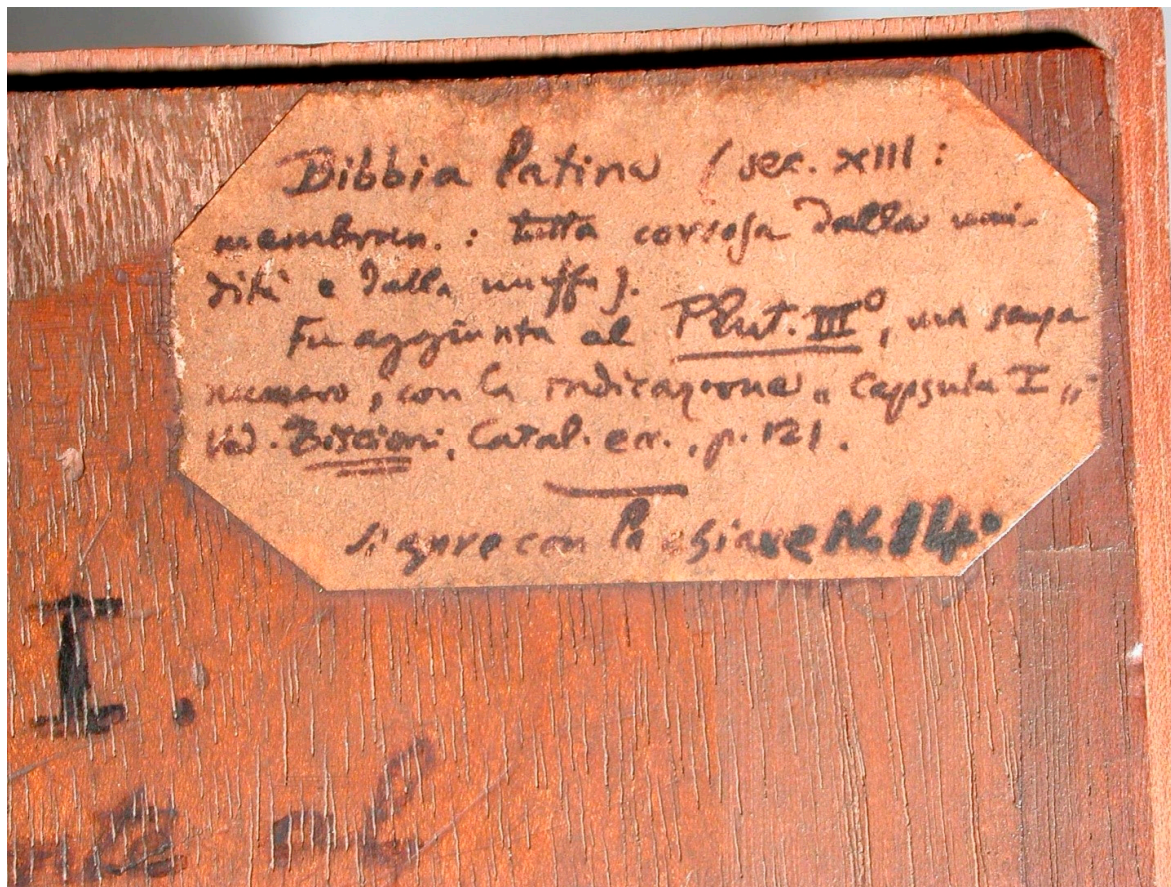 Bibbia latina (sec. XIII:
membran. : tutta corrosa dalla umi-
dità e dalla muffa).
Fu aggiunta al Plut. IIIº, ma senza
numero, con la indicazione „ Capsula I „
Ved. Biscioni, Catal. ecc., p. 121.
Si apre con la chiave No 14.
I.